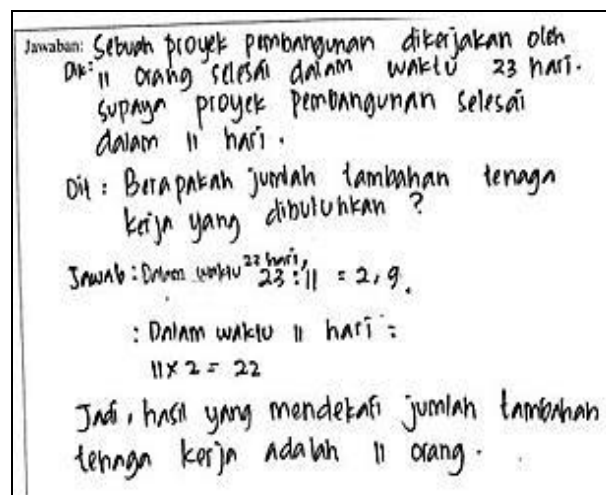 Jawaban: Sebuah proyek pembangunan dikerjakan oleh
Dik: 11 orang selesai dalam waktu 23 hari.
supaya proyek pembangunan selesai
dalam 11 hari.
Dit: Berapakah jumlah tambahan tenaga
kerja yang dibutuhkan?
Jawab: Dalam waktu 23 hari, 23 : 11 = 2,9.
: Dalam waktu 11 hari =
11 x 2 = 22
Jadi, hasil yang mendekati jumlah tambahan
tenaga kerja adalah 11 orang.